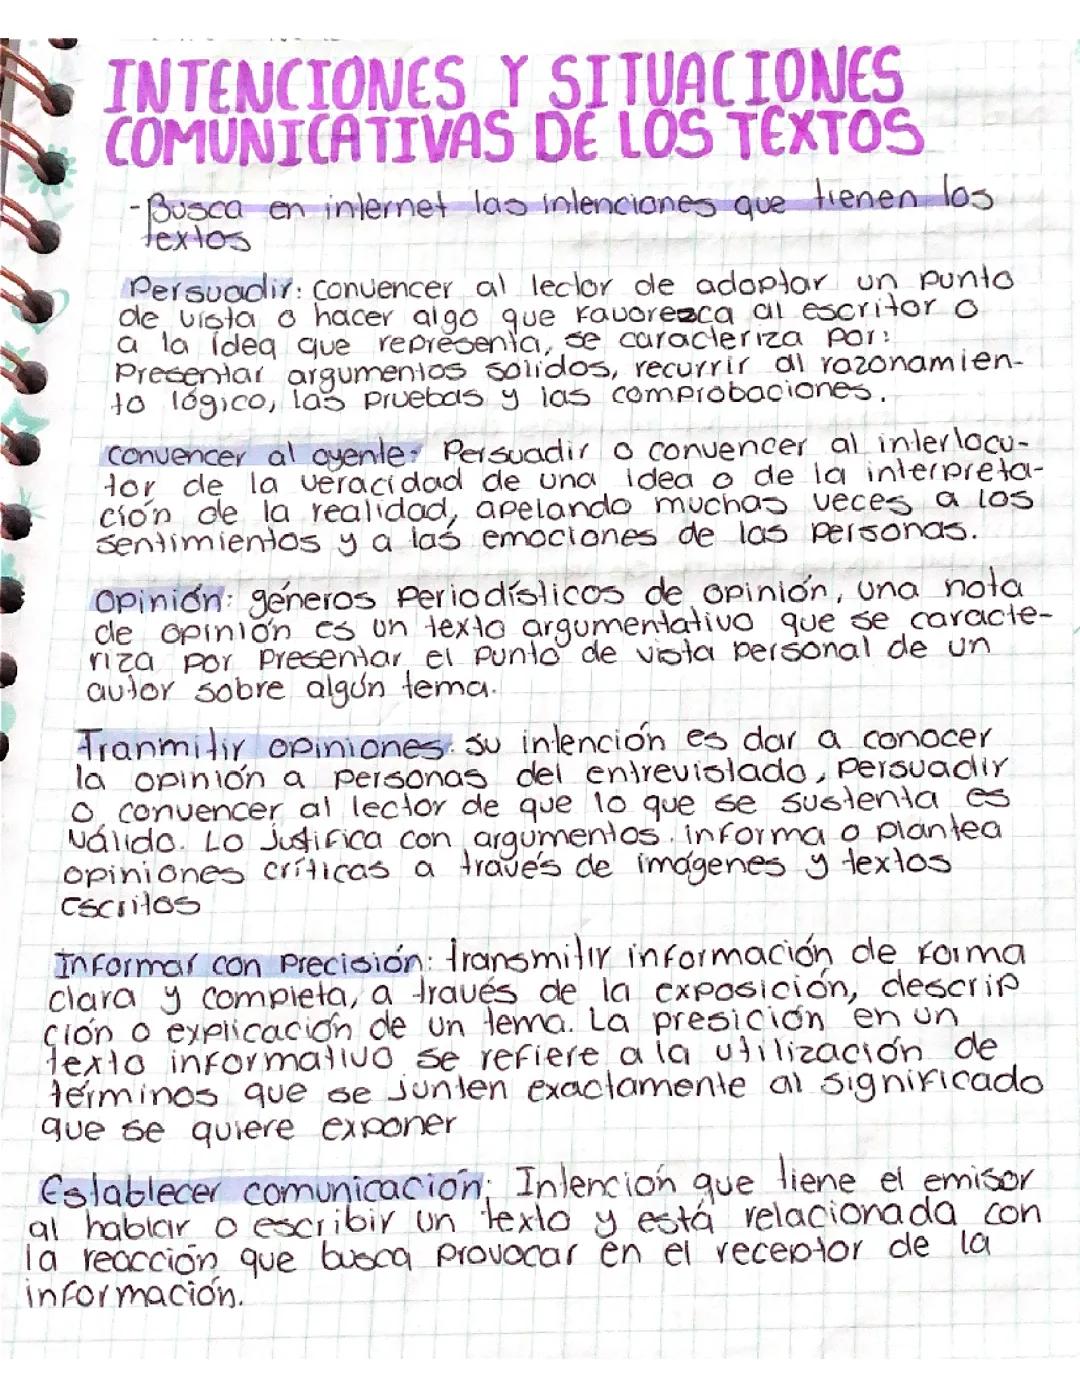 INTENCIONES Y SITUACIONES
COMUNICATIVAS DE LOS TEXTOS
-Busca en internet las intenciones que tienen los
textos
Persuadir: convencer al lector de adoptar un punto
de vista o hacer algo que favorezca al escritor o
a la idea que representa, se caracteriza por:
Presentar argumentos solidos, recurrir al razonamien-
to lógico, las pruebas y las comprobaciones.
convencer al oyente: Persuadir o convencer al interlocu-
tor de la veracidad de una idea o de la interpreta-
ción de la realidad, apelando muchas veces a los
sentimientos y a las emociones de las personas.
Opinión: géneros periodísticos de opinión, una nota
de opinión es un texto argumentativo que se caracte-
riza por presentar el punto de vista personal de un
autor sobre algún tema.
Tranmitir opiniones: su intención es dar a conocer
la opinión a personas del entrevistado, persuadir
o convencer al lector de que lo que se sustenta es
válido. Lo justifica con argumentos. informa o plantea
opiniones críticas a través de imágenes y textos
escritos
Informar con precisión: transmitir información de forma
clara y completa, a través de la exposición, descrip
ción o explicación de un tema. La presición en un
texto informativo se refiere a la utilización de
términos que se junten exactamente al significado
que se quiere exponer
Establecer comunicación: Intención que tiene el emisor
al hablar o escribir un texto y está relacionada con
la reacción que busca provocar en el receptor de la
información.